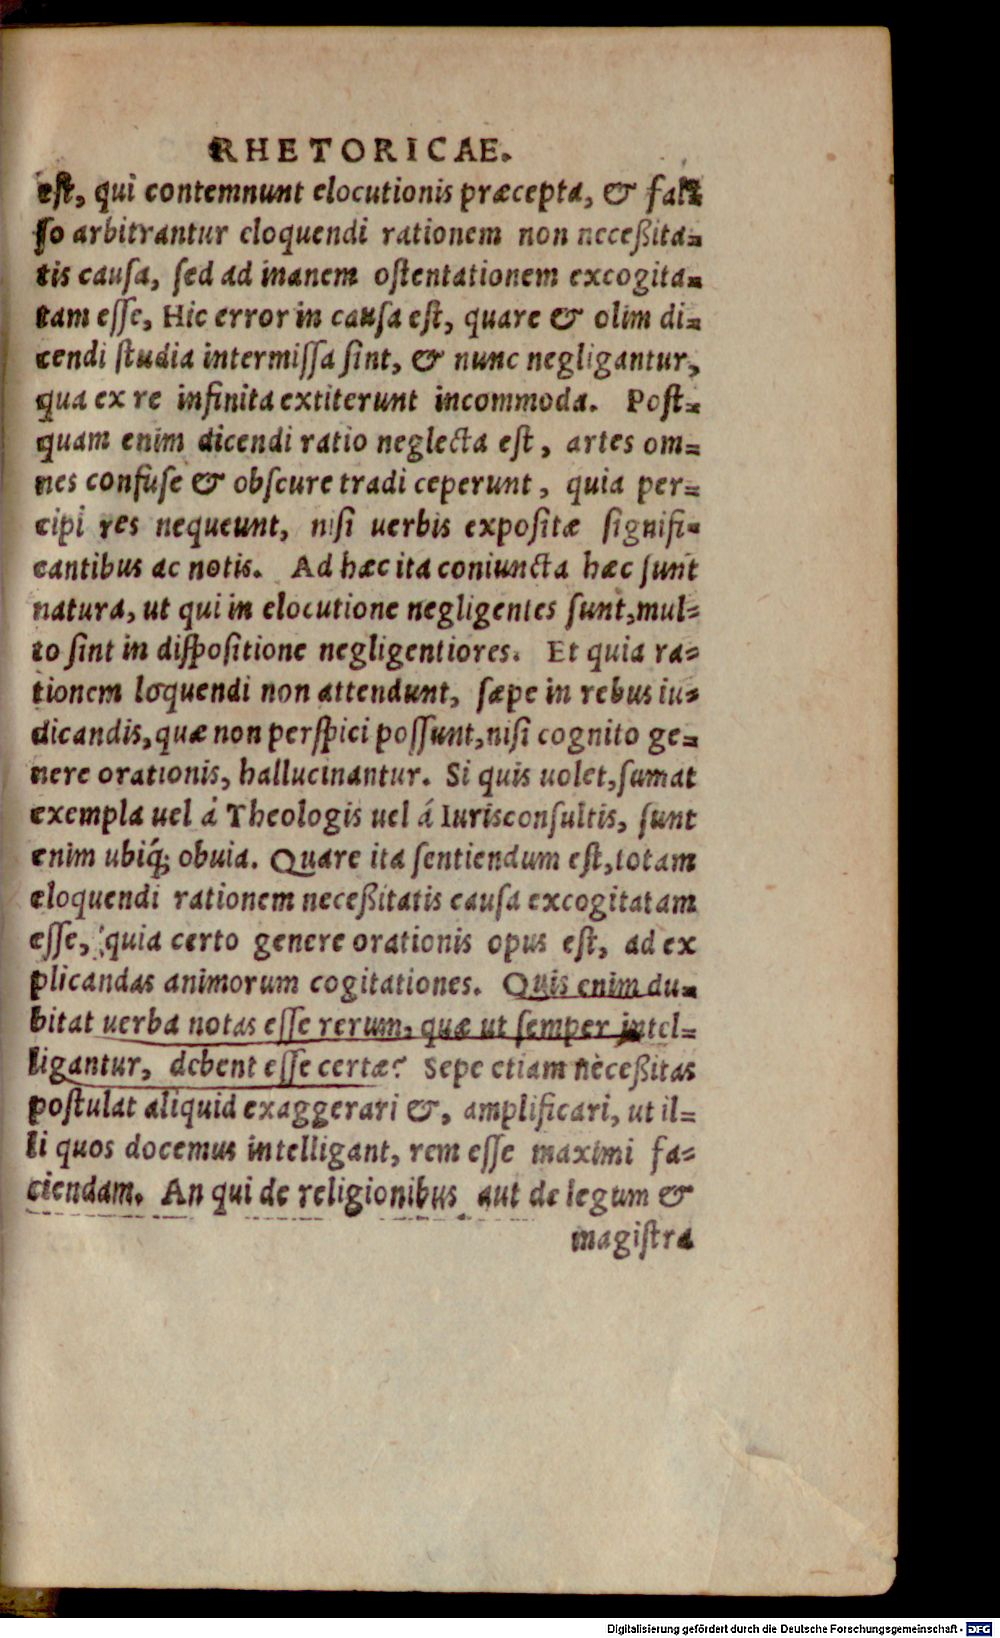 RHETORICAE.
est, qui contemnunt elocutionis præcepta, & fal-
so arbitrantur eloquendi rationem non neceßita-
tis causa, sed ad inanem ostentationem excogita-
tam esse, Hic error in causa est, quare & olim di-
cendi studia intermissa sint, & nunc negligantur,
qua ex re infinita extiterunt incommoda. Post-
quam enim dicendi ratio neglecta est, artes om-
nes confuse & obscure tradi ceperunt, quia per-
cipi res nequeunt, nisi uerbis expositæ signifi-
cantibus ac notis. Ad hæc ita coniuncta hæc sunt
natura, ut qui in elocutione negligentes sunt, mul-
to sint in dispositione negligentiores. Et quia ra-
tionem loquendi non attendunt, sæpe in rebus iu-
dicandis, quæ non perspici possunt, nisi cognito ge-
nere orationis, hallucinantur. Si quis uolet, sumat
exempla uel á Theologis uel á Iurisconsultis, sunt
enim ubiq́; obuia. Quare ita sentiendum est, totam
eloquendi rationem neceßitatis causa excogitatam
esse, quia certo genere orationis opus est, ad ex
plicandas animorum cogitationes. Quis enim du-
bitat uerba notas esse rerum, quæ ut semper intel-
ligantur, debent esse certæ? Sepe etiam neceßitas
postulat aliquid exaggerari &, amplificari, ut il-
li quos docemus intelligant, rem esse maximi fa-
ciendam. An qui de religionibus aut de legum &
magistra
Digitalisierung gefördert durch die Deutsche Forschungsgemeinschaft - DFG